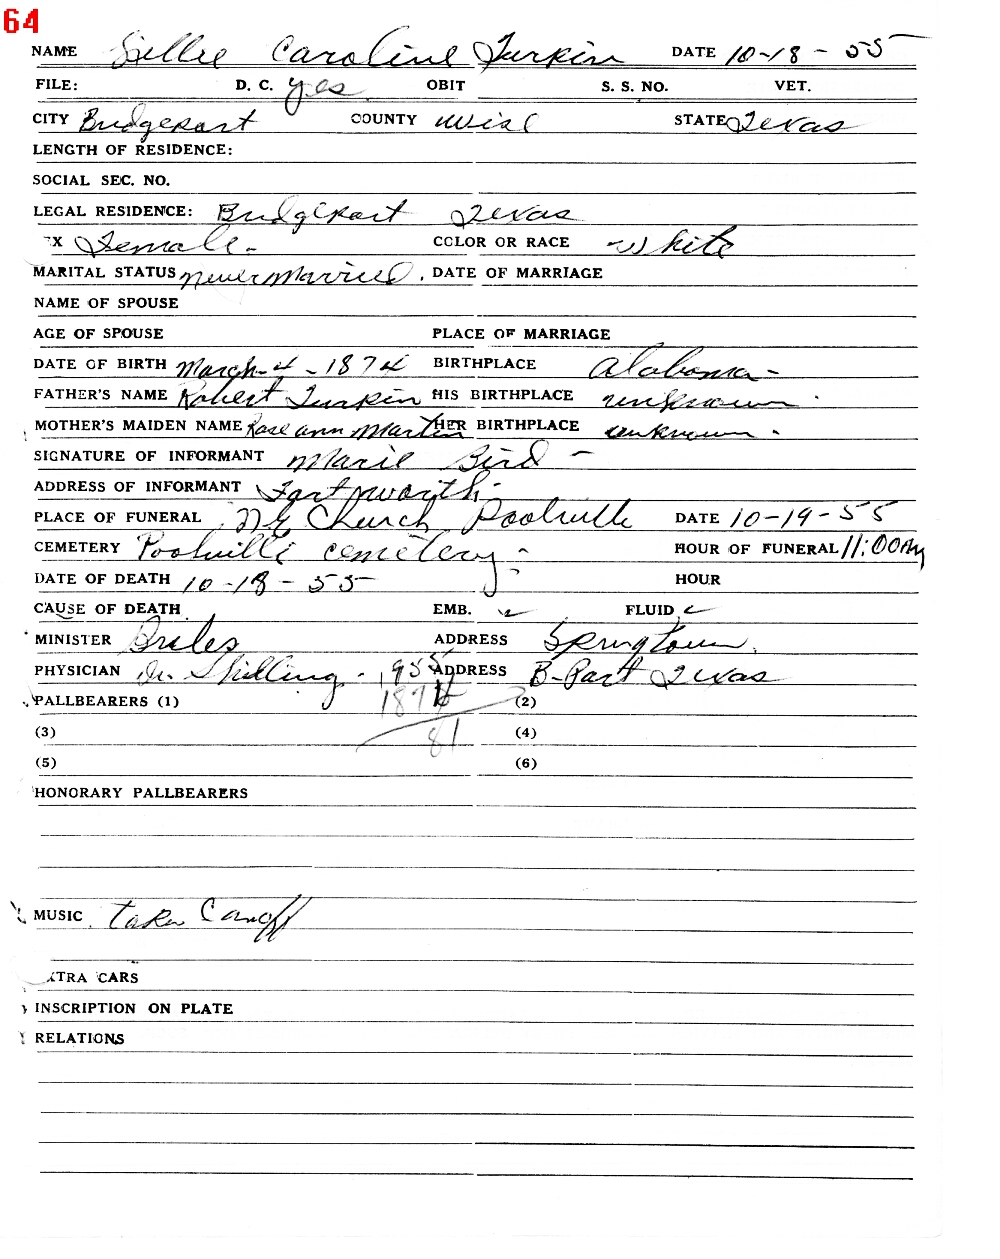 64
NAME Lillie Caroline Turpin DATE 10-18-55
FILE: D. C. yes OBIT S. S. NO. VET.
CITY Bridgeport COUNTY Wise STATE Texas
LENGTH OF RESIDENCE:
SOCIAL SEC. NO.
LEGAL RESIDENCE: Bridgeport Texas
EX Female - COLOR OR RACE White
MARITAL STATUS never Married. DATE OF MARRIAGE
NAME OF SPOUSE
AGE OF SPOUSE PLACE OF MARRIAGE
DATE OF BIRTH March-4-1874 BIRTHPLACE Alabama -
FATHER'S NAME Robert Turpin HIS BIRTHPLACE unknown.
MOTHER'S MAIDEN NAME Rose ann Martin HER BIRTHPLACE unknown.
SIGNATURE OF INFORMANT Marie Bird -
ADDRESS OF INFORMANT Fort worth-
PLACE OF FUNERAL Church Poolville DATE 10-19-55
CEMETERY Poolville cemetery - HOUR OF FUNERAL 11:00 AM
DATE OF DEATH 10-18-55 HOUR
CAUSE OF DEATH EMB. FLUID
MINISTER Briles ADDRESS Springtown.
PHYSICIAN Dr. Shilling - 1955 ADDRESS B-Port Texas
PALLBEARERS (1) 1874 (2)
(3) 81 (4)
(5) (6)
HONORARY PALLBEARERS
MUSIC Taken
XTRA CARS
INSCRIPTION ON PLATE
RELATIONS